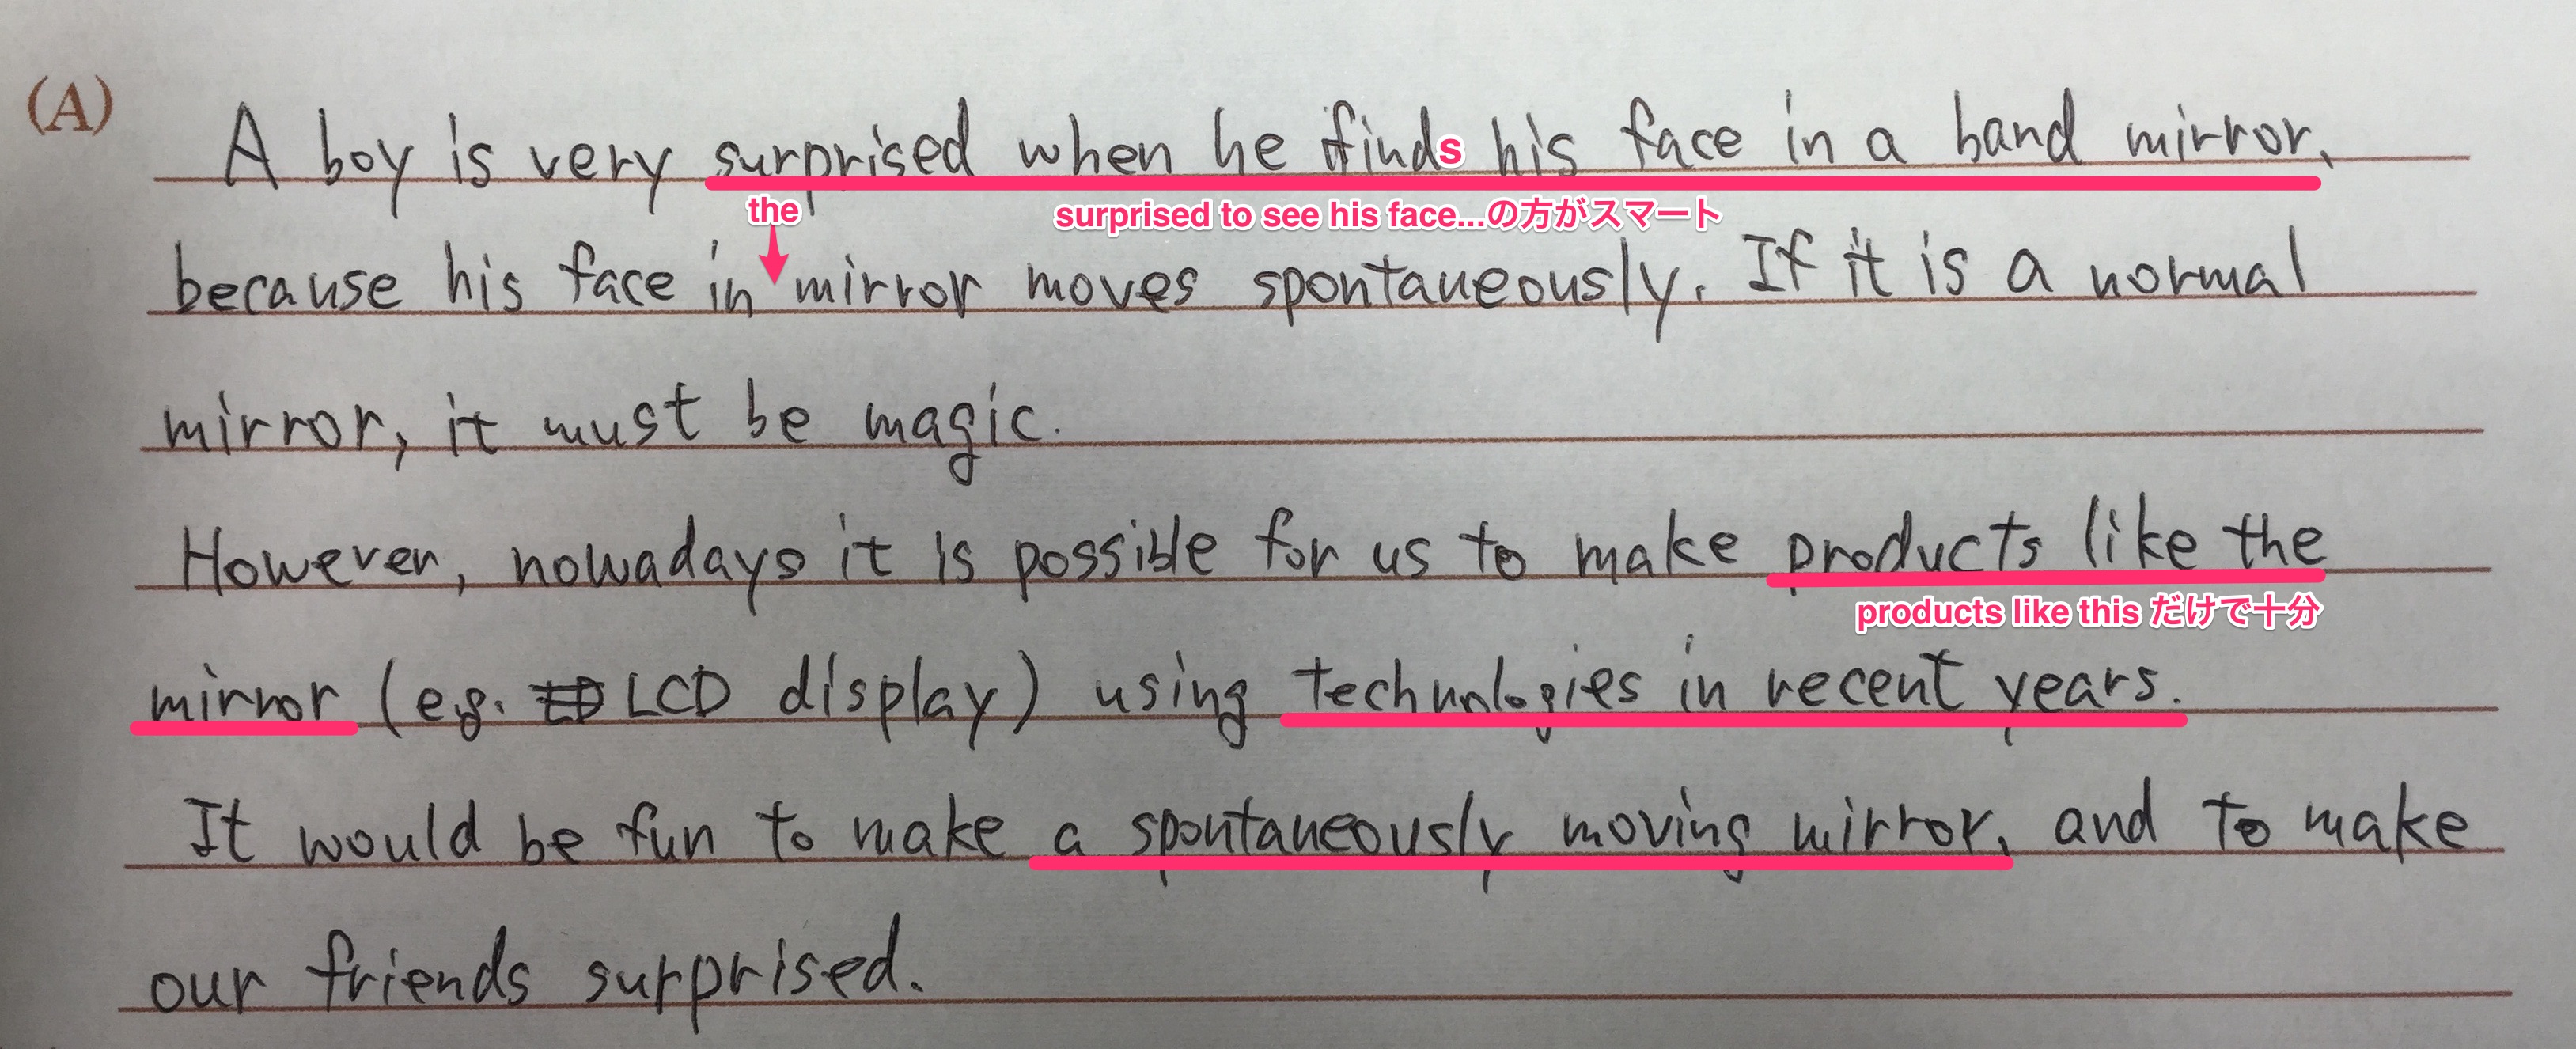 (A)
A boy is very surprised when he finds his face in a hand mirror,
the
surprised to see his face...の方がスマート
because his face in mirror moves spontaneously. If it is a normal
mirror, it must be magic.
However, nowadays it is possible for us to make products like the
products like this だけで十分
mirror (e.g. LCD display) using technologies in recent years.
It would be fun to make a spontaneously moving mirror, and to make
our friends surprised.